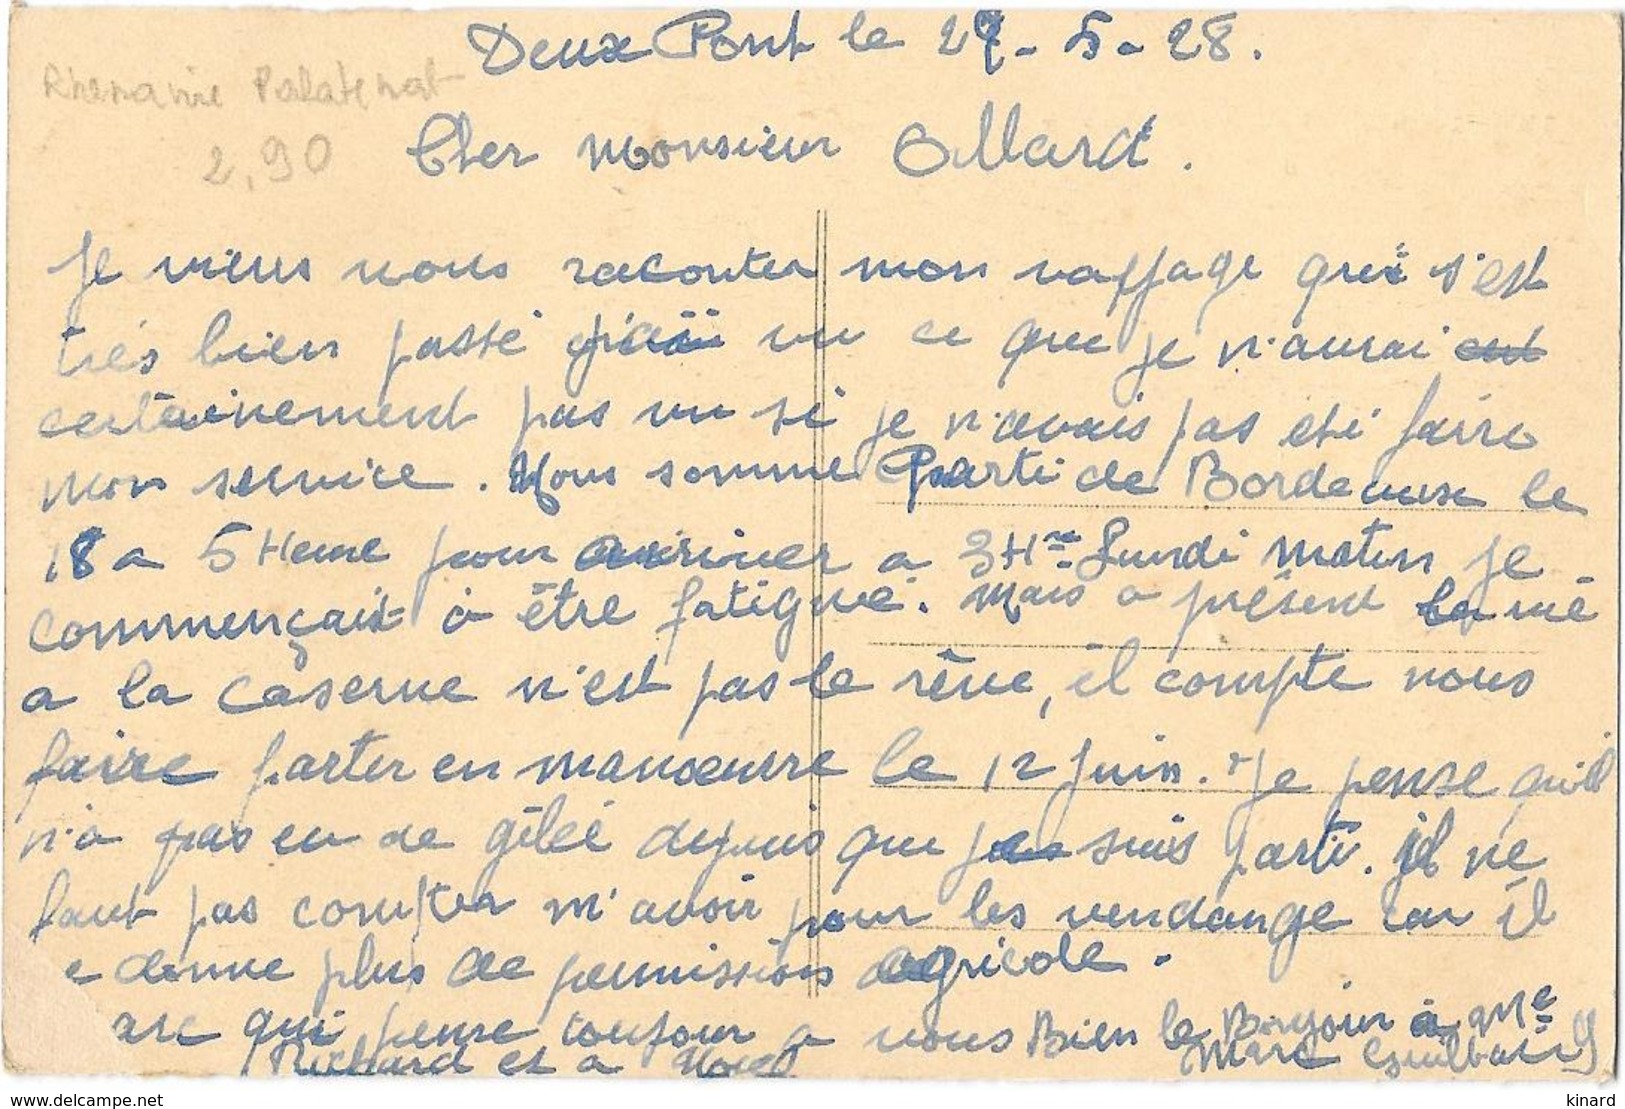 Deux Pont le 27-5-28.
Rhenanie Palatinat
2,90
Cher Monsieur Ollard.
Je viens vous raconter mon vaffage qui s'est
très bien passé j'ai vu ce que je n'aurai
certainement pas vu si je n'avais pas été faire
mon service. Nous somme Parti de Bordeause le
18 a 5 Heure pour arriver a 3Hre Lundi matin je
commençait à être fatigué. Mais a présent la vie
a la caserne n'est pas le rêve, il compte nous
faire parter en manoeuvre le 12 juin. Je pense qu'il
n'a pas eu de gêlée depuis que je suis parti. il ne
faut pas compter m'avoir pour les vendange car il
e donne plus de permission agricole.
arc qui pense toujour a vous Bien le Bonjour à Me
Richard et a Noel Marc Guilbaud
kinard
delcampe.net